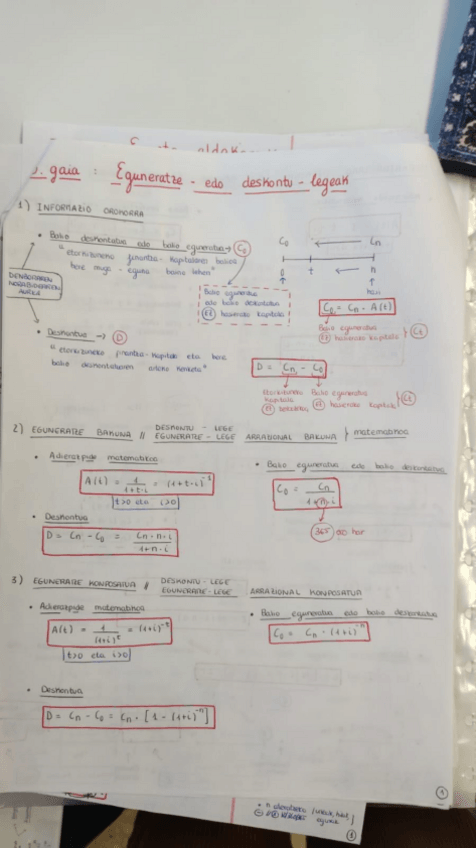 gaia : Eguneratze - edo deskontu - legeak
1) INFORMAZIO OROKORRA
• Balio deskontatua edo balio eguneratua → C₀
"etorkizuneko finantza-kapitalaren balioa
bere muga-eguna baino lehen"
C₀ ← Cn
0 t n
Balio eguneratua
edo balio deskontatua
hasierako kapitala
C₀ = Cn · A(t)
Balio eguneratua
hasierako kapitala } Ct
DENBORAREN
NORABIDEAREN
AURKA
• Deskontua → D
"etorkizuneko finantza-kapitala eta bere
balio deskontatuaren arteko kenketa"
D = Cn - C₀
Etorkizuneko Balio eguneratua
kapitala hasierako kapitala } Ct
2) EGUNERATZE BAKUNA // DESKONTU - LEGE
EGUNERATZE - LEGE ARRAZIONAL BAKUNA } matematikoa
• Adierazpide matematikoa
A(t) = 1/(1+t·i) = (1+t·i)⁻¹
t>0 eta i>0
• Balio eguneratua edo balio deskontatua
C₀ = Cn/(1+n·i)
365
• Deskontua
D = Cn - C₀ = Cn·n·i/(1+n·i)
3) EGUNERATZE KONPOSATUA // DESKONTU - LEGE
EGUNERATZE - LEGE ARRAZIONAL KONPOSATUA
• Adierazpide matematikoa
A(t) = 1/(1+i)ᵗ = (1+i)⁻ᵗ
t>0 eta i>0
• Balio eguneratua edo balio deskontatua
C₀ = Cn · (1+i)⁻ⁿ
• Deskontua
D = Cn - C₀ = Cn · [1 - (1+i)⁻ⁿ]
1